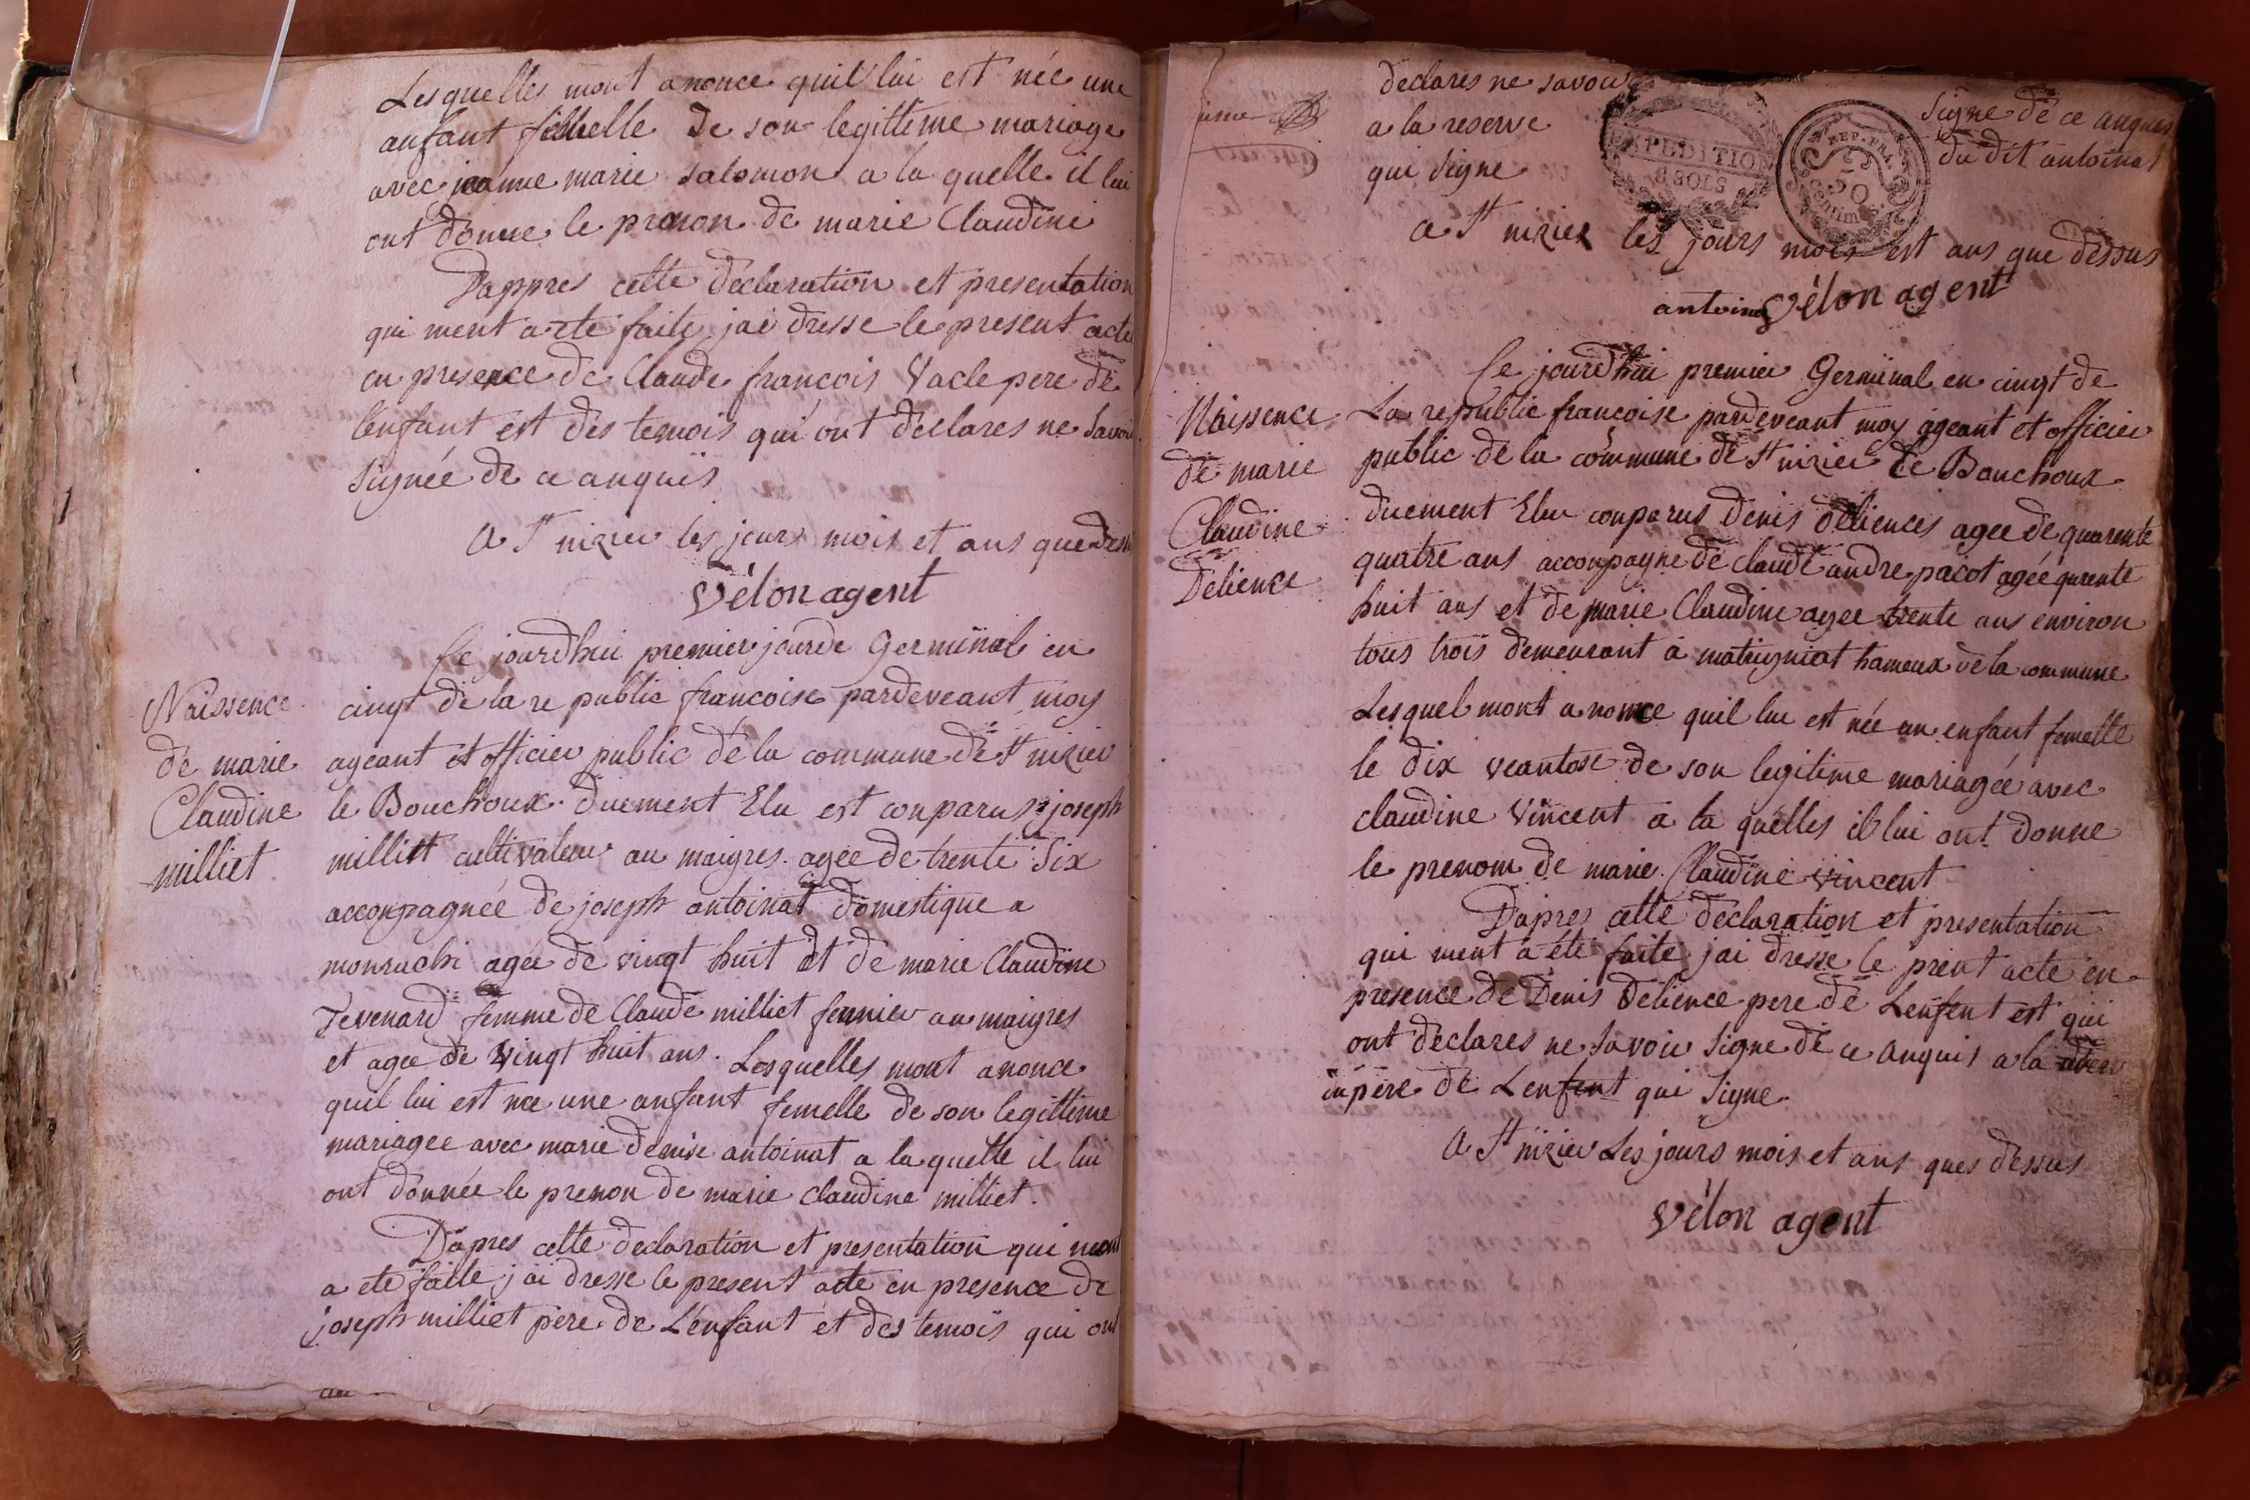 Lesquelles mont anonce quil lui est née une
anfant femelle de son legittime mariage
avec jeanne marie salomon a la quelle il lui
ont donne le prenon de marie Claudine
Dappres cette déclaration et presentation
qui ment a ete faite jai dresse le present acte
en presence de Claude francois Vacle pere de
Lenfant est des temois qui ont déclares ne Savoir
Signée de ce anquis
A St nizier les jours mois et ans que dessu
Vélon agent
Naissence
de marie
Claudine
milliet
Ce jourdhui premier jour de Germinal en
cinqt de la re public francoise pardeveant moy
ageant et officier public de la commune de St nizier
le Bouchoux duement Elu est conparus joseph
milliet cultivateur au maigres agée de trente Six
acconpagnée de joseph antoinat domestique a
monrachi agée de vingt huit et de marie Claudine
Tevenard femme de Claude milliet fermier au maigres
et agee de vingt huit ans. Lesquelles mont anonce
quil lui est nee une anfant femelle de son legittime
mariagee avec marie denise antoinat a la quelle il lui
ont donnée le prenon de marie Claudine milliet.
Dapres cette declaration et presentation qui ment
a ete faite jai dresse le present acte en presence de
joseph milliet père de Lenfant et des temois qui ont
declares ne savoir Signe de ce anquis
a la reserve du dit antoinat
qui Signe
EXPEDITION
8 SOLS
REP. FRA.
50
centim
A St nizier les jours mois est ans que dessus
antoinat Vélon agent
Naissence
de marie
Claudine
Delience
Ce jourdhui premier Germinal en cinqt de
La republic francoise pardeveant moy ageant et officier
public de la commune de St nizier le Bouchoux
duement Elu conparus Denis déliences agee de quarente
quatre ans acconpagne de Claude andre pacot agée qurente
huit ans et de marie Claudine agee trente ans environ
tous trois demeurant a matrigniat hameux de la commune
Lesquel mont anonce quil lui est née un enfant femelle
le dix veantose de son legitime mariagée avec
claudine Vincent a la quelles il lui ont donne
le prenom de marie Claudine vincent
Dapres cette déclaration et presentation
qui ment a été faite jai dresse le prent acte en
presence de Denis Delience pere de Lenfent est qui
ont declares ne Savoir Signe de ce anquis a la
pere de Lenfent qui Signe
A St nizier Les jours mois et ans ques dessus
Vélon agent